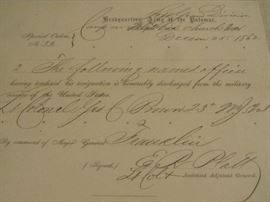 Headquarters Army of the Potomac,
Camp
Church
1862
Special Orders,
No.
2. The following named officer
having tendered his resignation is honorably discharged from the military
service of the United States.
Lt Colonel C. Brown 23
By command of Major General Franklin
(Signed.) E. R. Platt
Lt Col & Assistant Adjutant General.